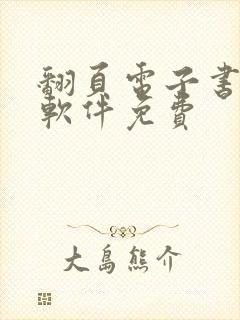 翻頁電子書
軟件免費
大島熊介